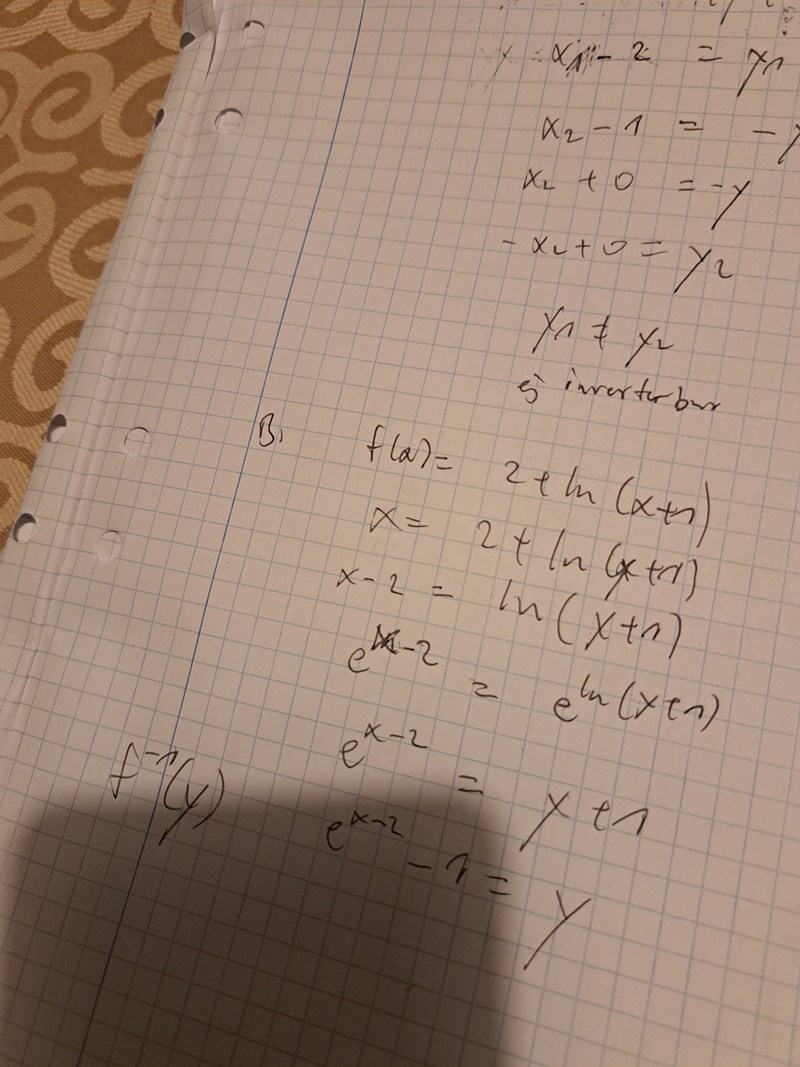 x₁ - 2 = y₁
x₂ - 1 = -y
x₂ + 0 = -y
- x₂ + 0 = y₂
y₁ ≠ y₂
ej inverterbar
B.
f(x) = 2 + ln (x+1)
x = 2 + ln (y+1)
x - 2 = ln (y+1)
e^x-2 = e^ln (y+1)
e^x-2 = y + 1
f⁻¹(y) e^x-2 - 1 = y